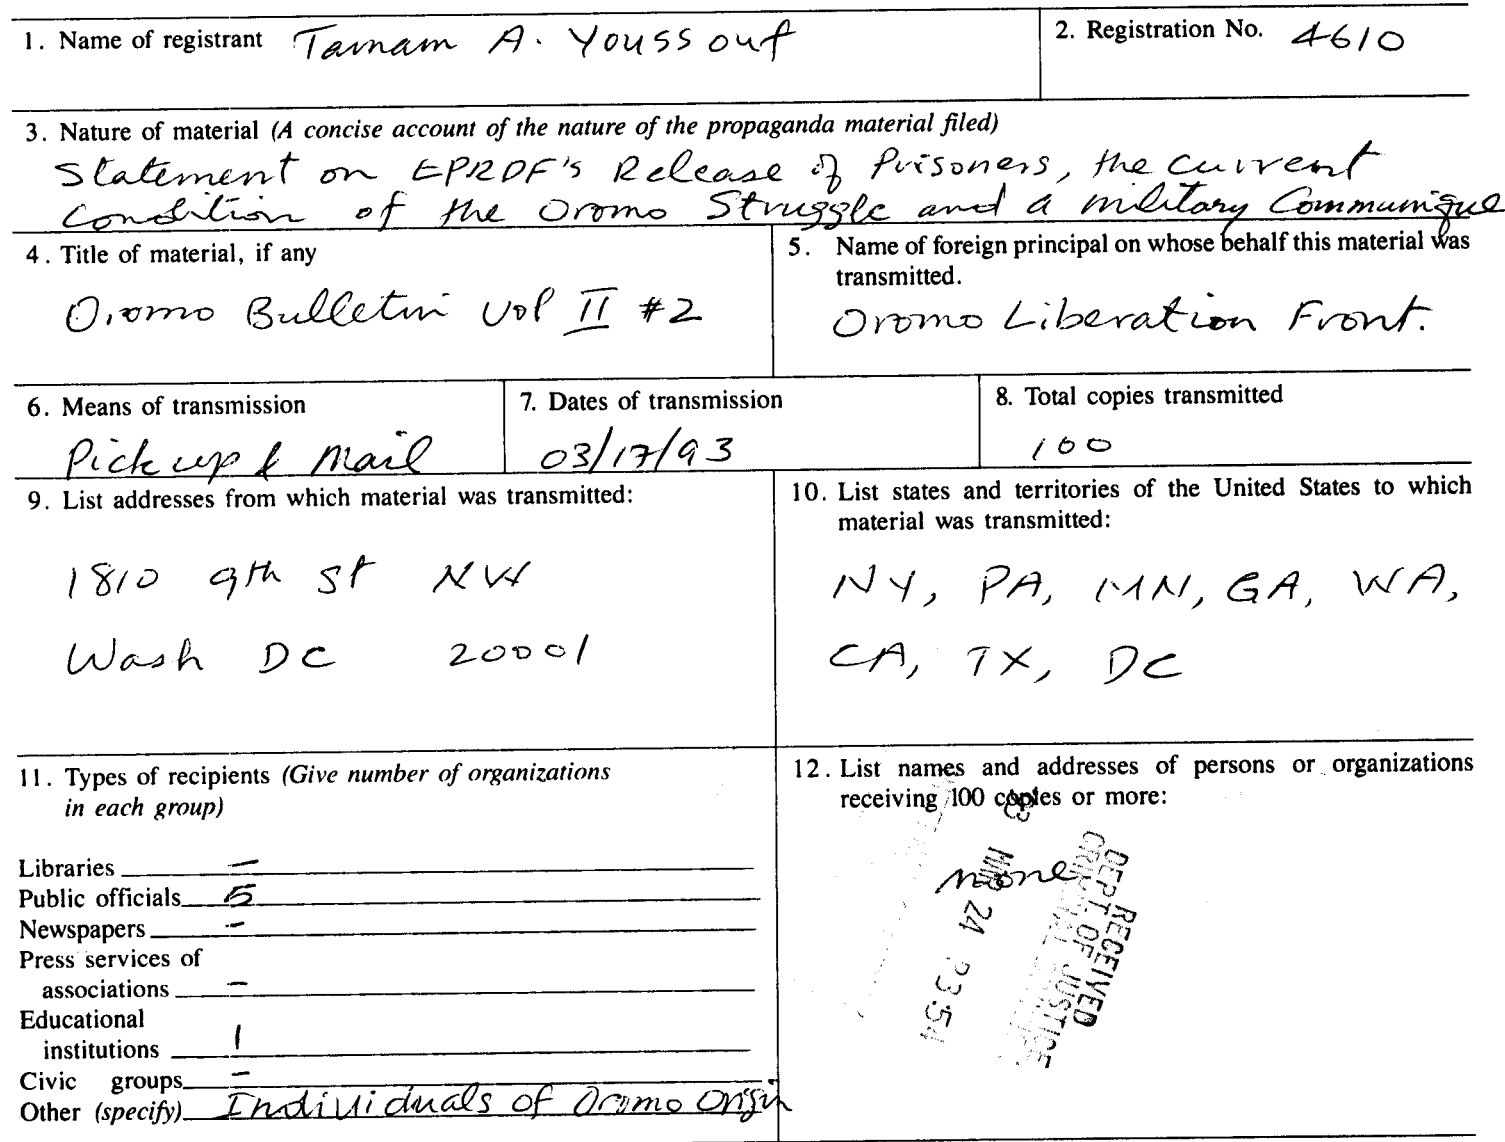 1. Name of registrant Tamam A. Youssouf
2. Registration No. 4610
3. Nature of material (A concise account of the nature of the propaganda material filed)
Statement on EPRDF's Release of Prisoners, the current
condition of the Oromo Struggle and a military Communique
4. Title of material, if any
Oromo Bulletin Vol II #2
5. Name of foreign principal on whose behalf this material was
transmitted.
Oromo Liberation Front.
6. Means of transmission
Pick up & Mail
7. Dates of transmission
03/17/93
8. Total copies transmitted
100
9. List addresses from which material was transmitted:
1810 9th St NW
Wash DC 20001
10. List states and territories of the United States to which
material was transmitted:
NY, PA, MN, GA, WA,
CA, TX, DC
11. Types of recipients (Give number of organizations
in each group)
Libraries -
Public officials 5
Newspapers -
Press services of
associations -
Educational
institutions 1
Civic groups -
Other (specify) Individuals of Oromo Origin
12. List names and addresses of persons or organizations
receiving 100 copies or more:
none
RECEIVED
DEPT. OF JUSTICE
MAR 24